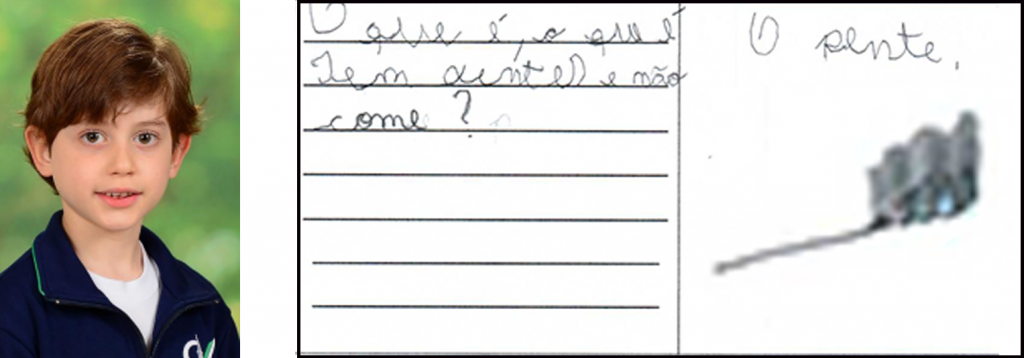 O que é, o que é
Tem dentes e não
come?
O pente.